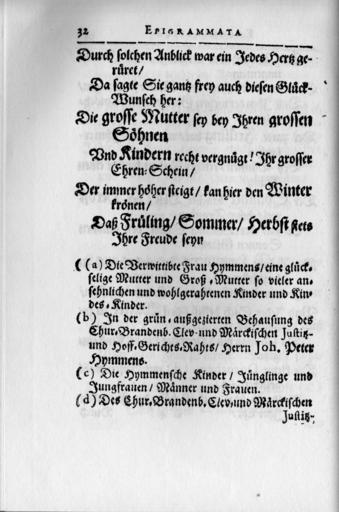 32 EPIGRAMMATA
Durch solchen Anblick war ein Jedes Hertz ge-
rüret/
Da sagte Sie gantz frey auch diesen Glück-
Wunsch her:
Die grosse Mutter sey bey Ihren grossen
Söhnen
Vnd Kindern recht vergnügt! Ihr grosser
Ehren-Schein/
Der immer höher steigt/ kan hier den Winter
krönen/
Daß Früling/ Sommer/ Herbst stets
Ihre Freude seyn
( (a) Die Verwittibte Frau Hymmens/ eine glück-
selige Mutter und Groß-Mutter so vieler an-
sehnlichen und wohlgerahtenen Kinder und Kin-
des-Kinder.
(b) In der grün-außgezierten Behausung des
Chur-Brandenb. Clev-und Märckischen Justitz-
und Hoff-Gerichts-Rahts/ Herrn Joh. Peter
Hymmens.
(c) Die Hymmensche Kinder/ Jünglinge und
Jungfrauen/ Männer und Frauen.
(d) Des Chur-Brandenb. Clev-und Märckischen
Justitz-